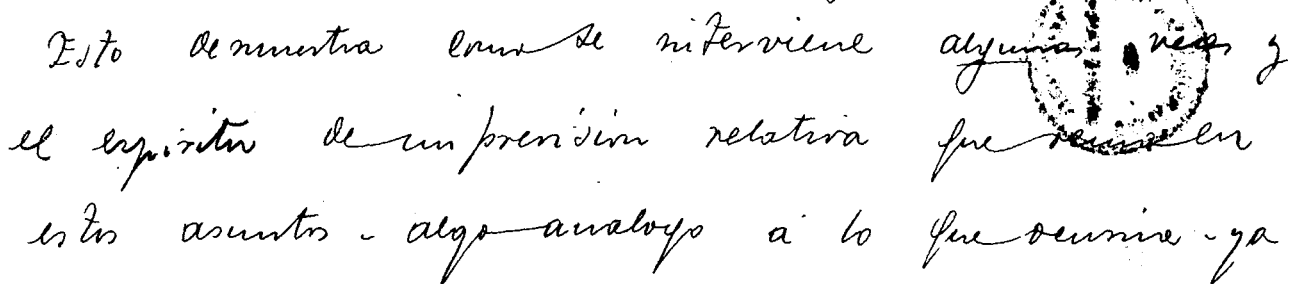 Esto demuestra como se interviene algunas veces y
el espiritu de imprevision relativa que reina en
estos asuntos - algo analogo a lo que ocurrio - ya